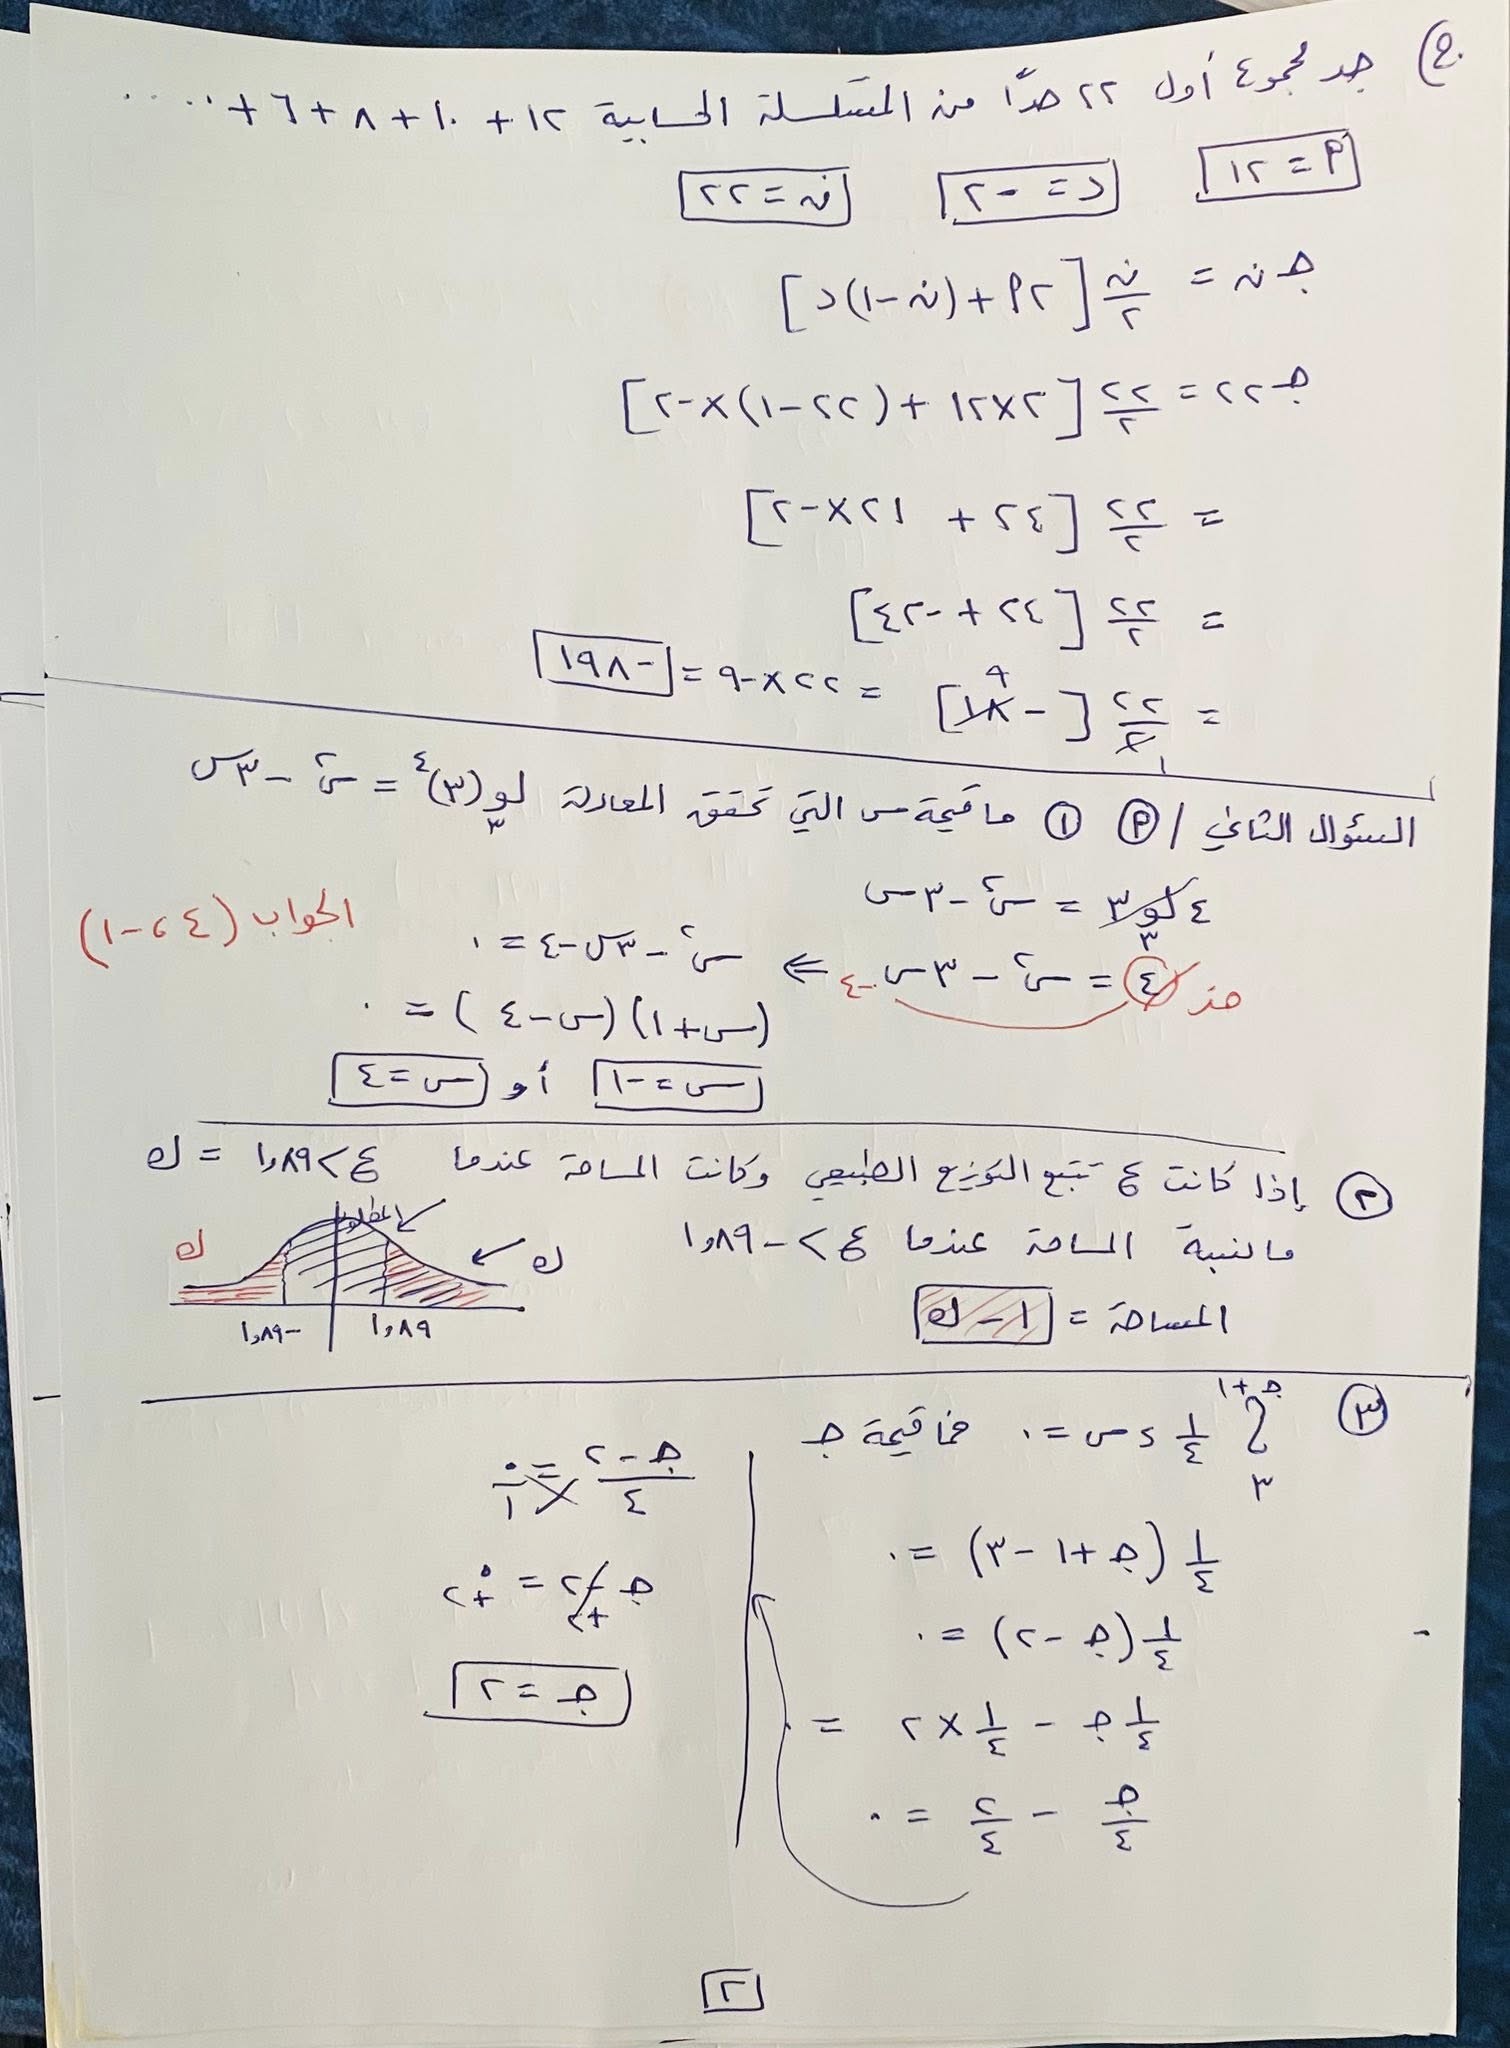 ج) جد مجموع أول ٢٢ حدًا من المتسلسلة الحسابية ١٢ + ١٠ + ٨ + ٦ + .....
أ = ١٢    د = -٢    ن = ٢٢
جـ ن = ن/٢ [٢أ + (ن - ١)د]
جـ ٢٢ = ٢٢/٢ [٢×١٢ + (٢٢ - ١)×-٢]
= ٢٢/٢ [٢٤ + ٢١×-٢]
= ٢٢/٢ [٢٤ + -٤٢]
= ٢٢/٢ [-١٨] = ٢٢×-٩ = -١٩٨
٩
١
السؤال الثاني / أ ① ما قيمة س التي تحقق المعادلة لو٣(٣)^٤ = س² - ٣س
٤ لو٣ ٣ = س² - ٣س
هذه ٤ = س² - ٣س -٤ ⇐ س² - ٣س - ٤ = ٠
الجواب (٤ ، -١)
(س + ١)(س - ٤) = ٠
س = -١ أو س = ٤
② إذا كانت ع تتبع التوزيع الطبيعي وكانت المساحة عندما ع > ١,٨٩ = ك
ما نسبة المساحة عندما ع > -١,٨٩
المساحة = ١ - ك
المطلوب
ك ك
-١,٨٩ ١,٨٩
③ ∫٣^(جـ+١) ١/٤ دس = ٠ فما قيمة جـ
١/٤ (جـ + ١ - ٣) = ٠
١/٤ (جـ - ٢) = ٠
١/٤ جـ - ١/٤ × ٢ = ٠
جـ/٤ - ٢/٤ = ٠
جـ - ٢/٤ = ٠/١
جـ - ٢ +٢ = ٠ +٢
جـ = ٢
٢